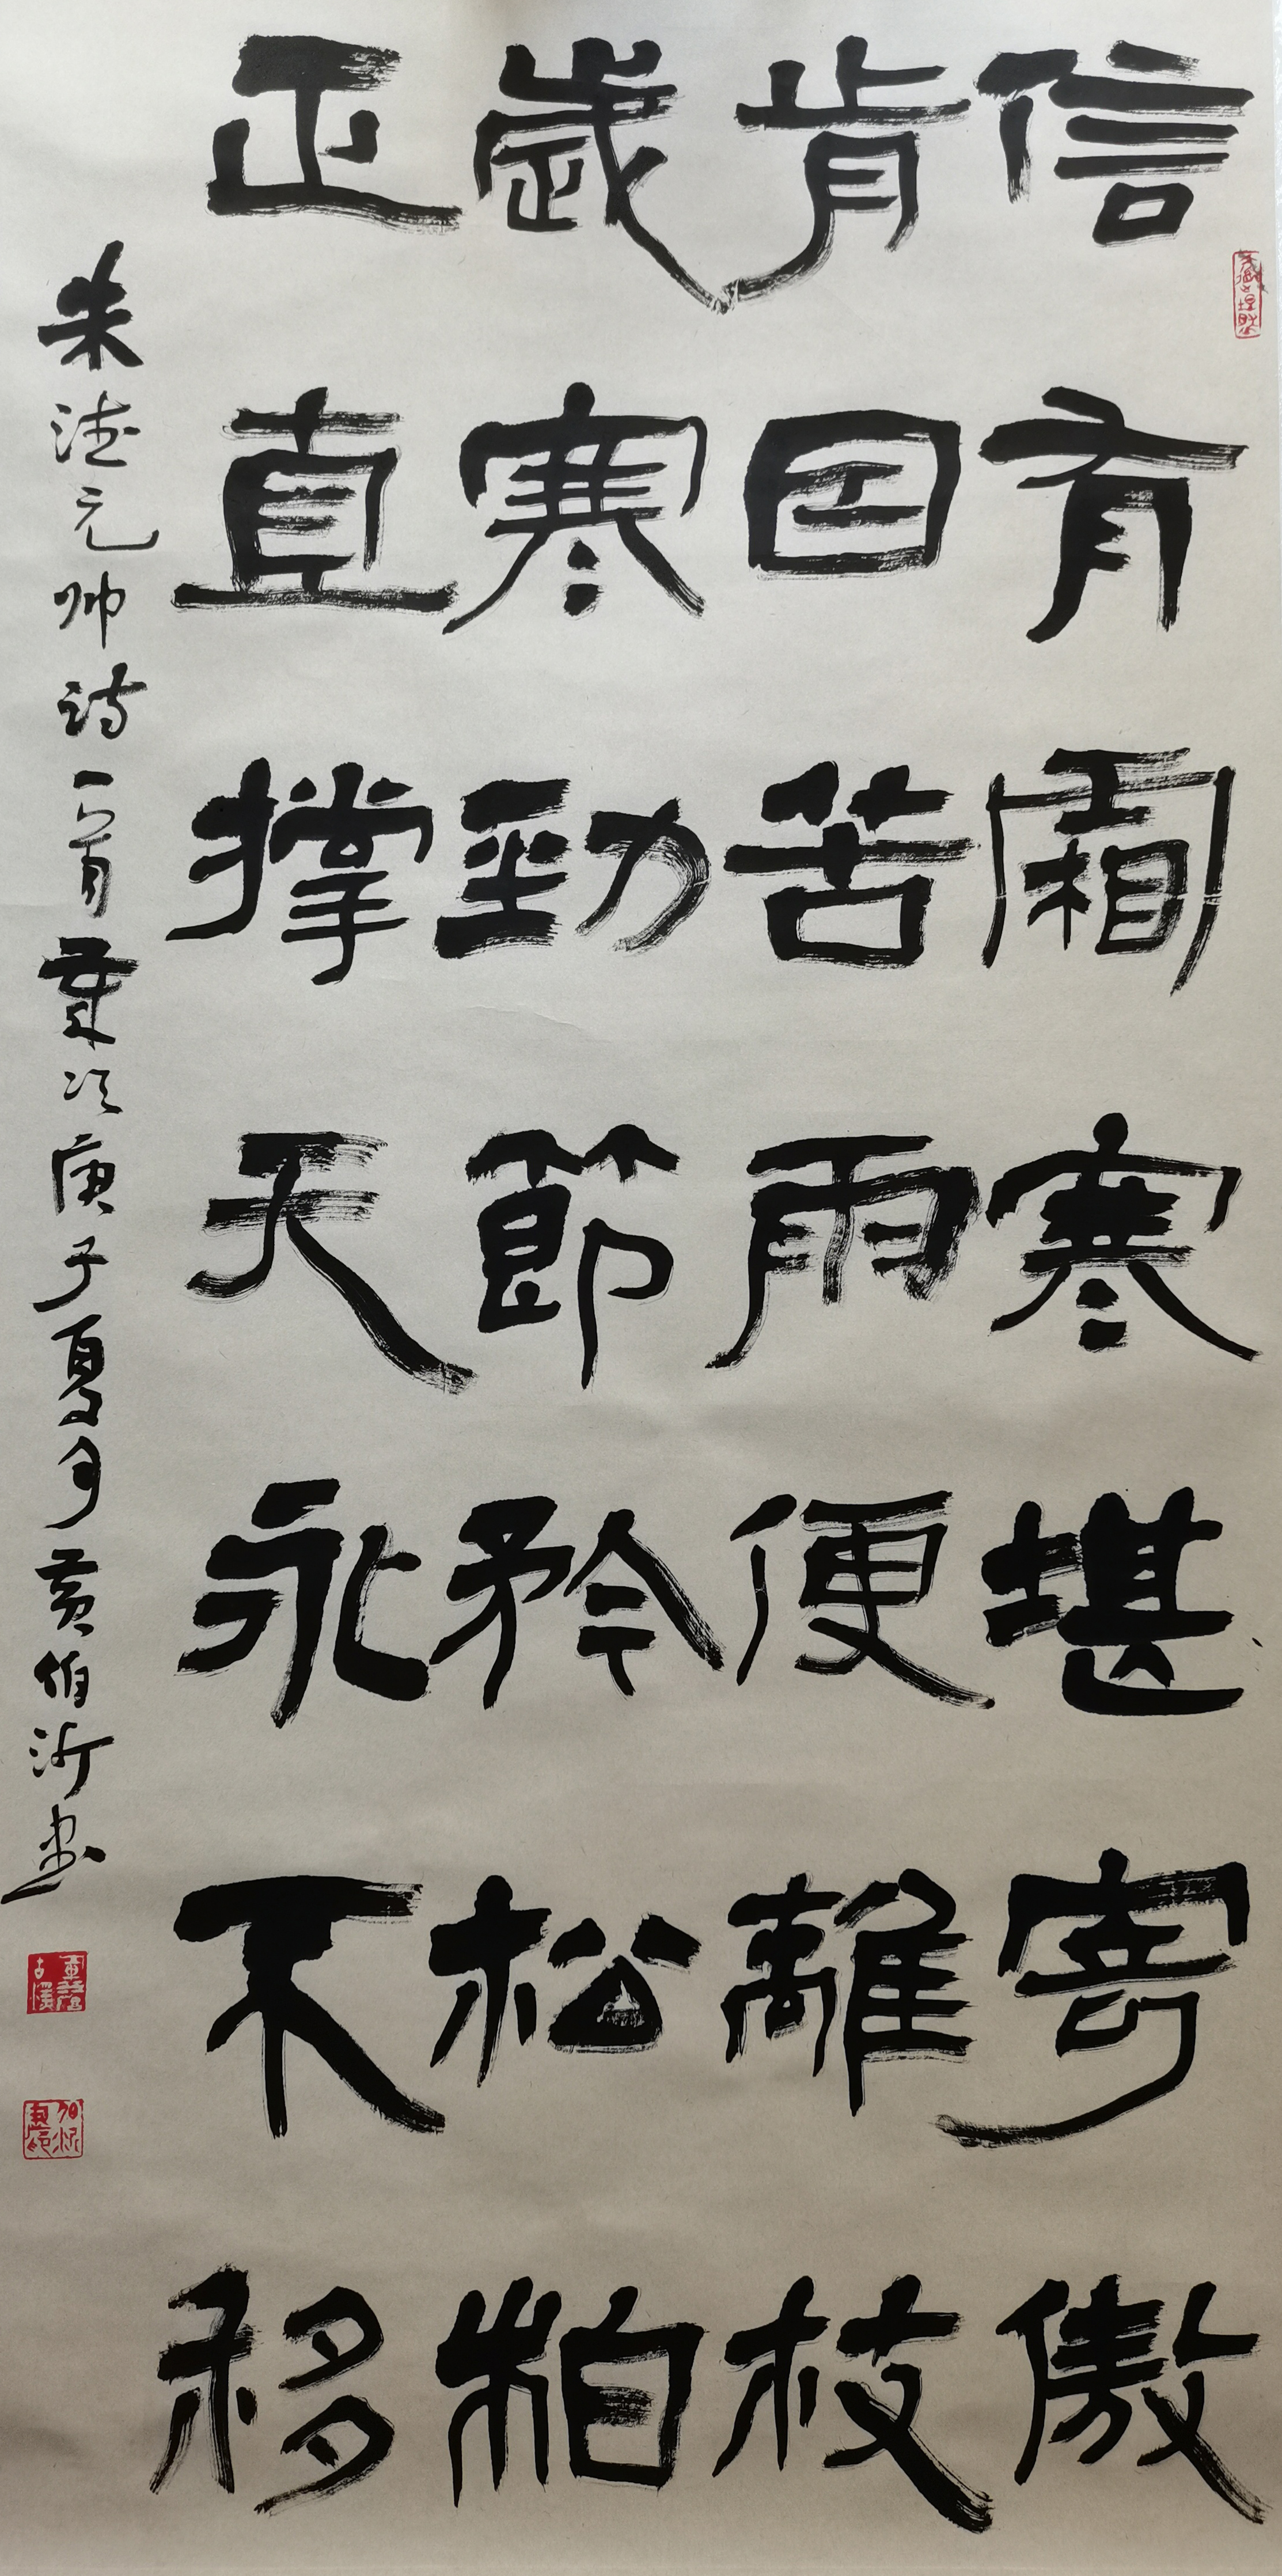 信有霜寒堪寄傲
肯因苦雨便離枝
歲寒勁節矜松柏
正直撐天永不移
朱德元帅詩一首 歲次庚子夏月 黄伯沂書